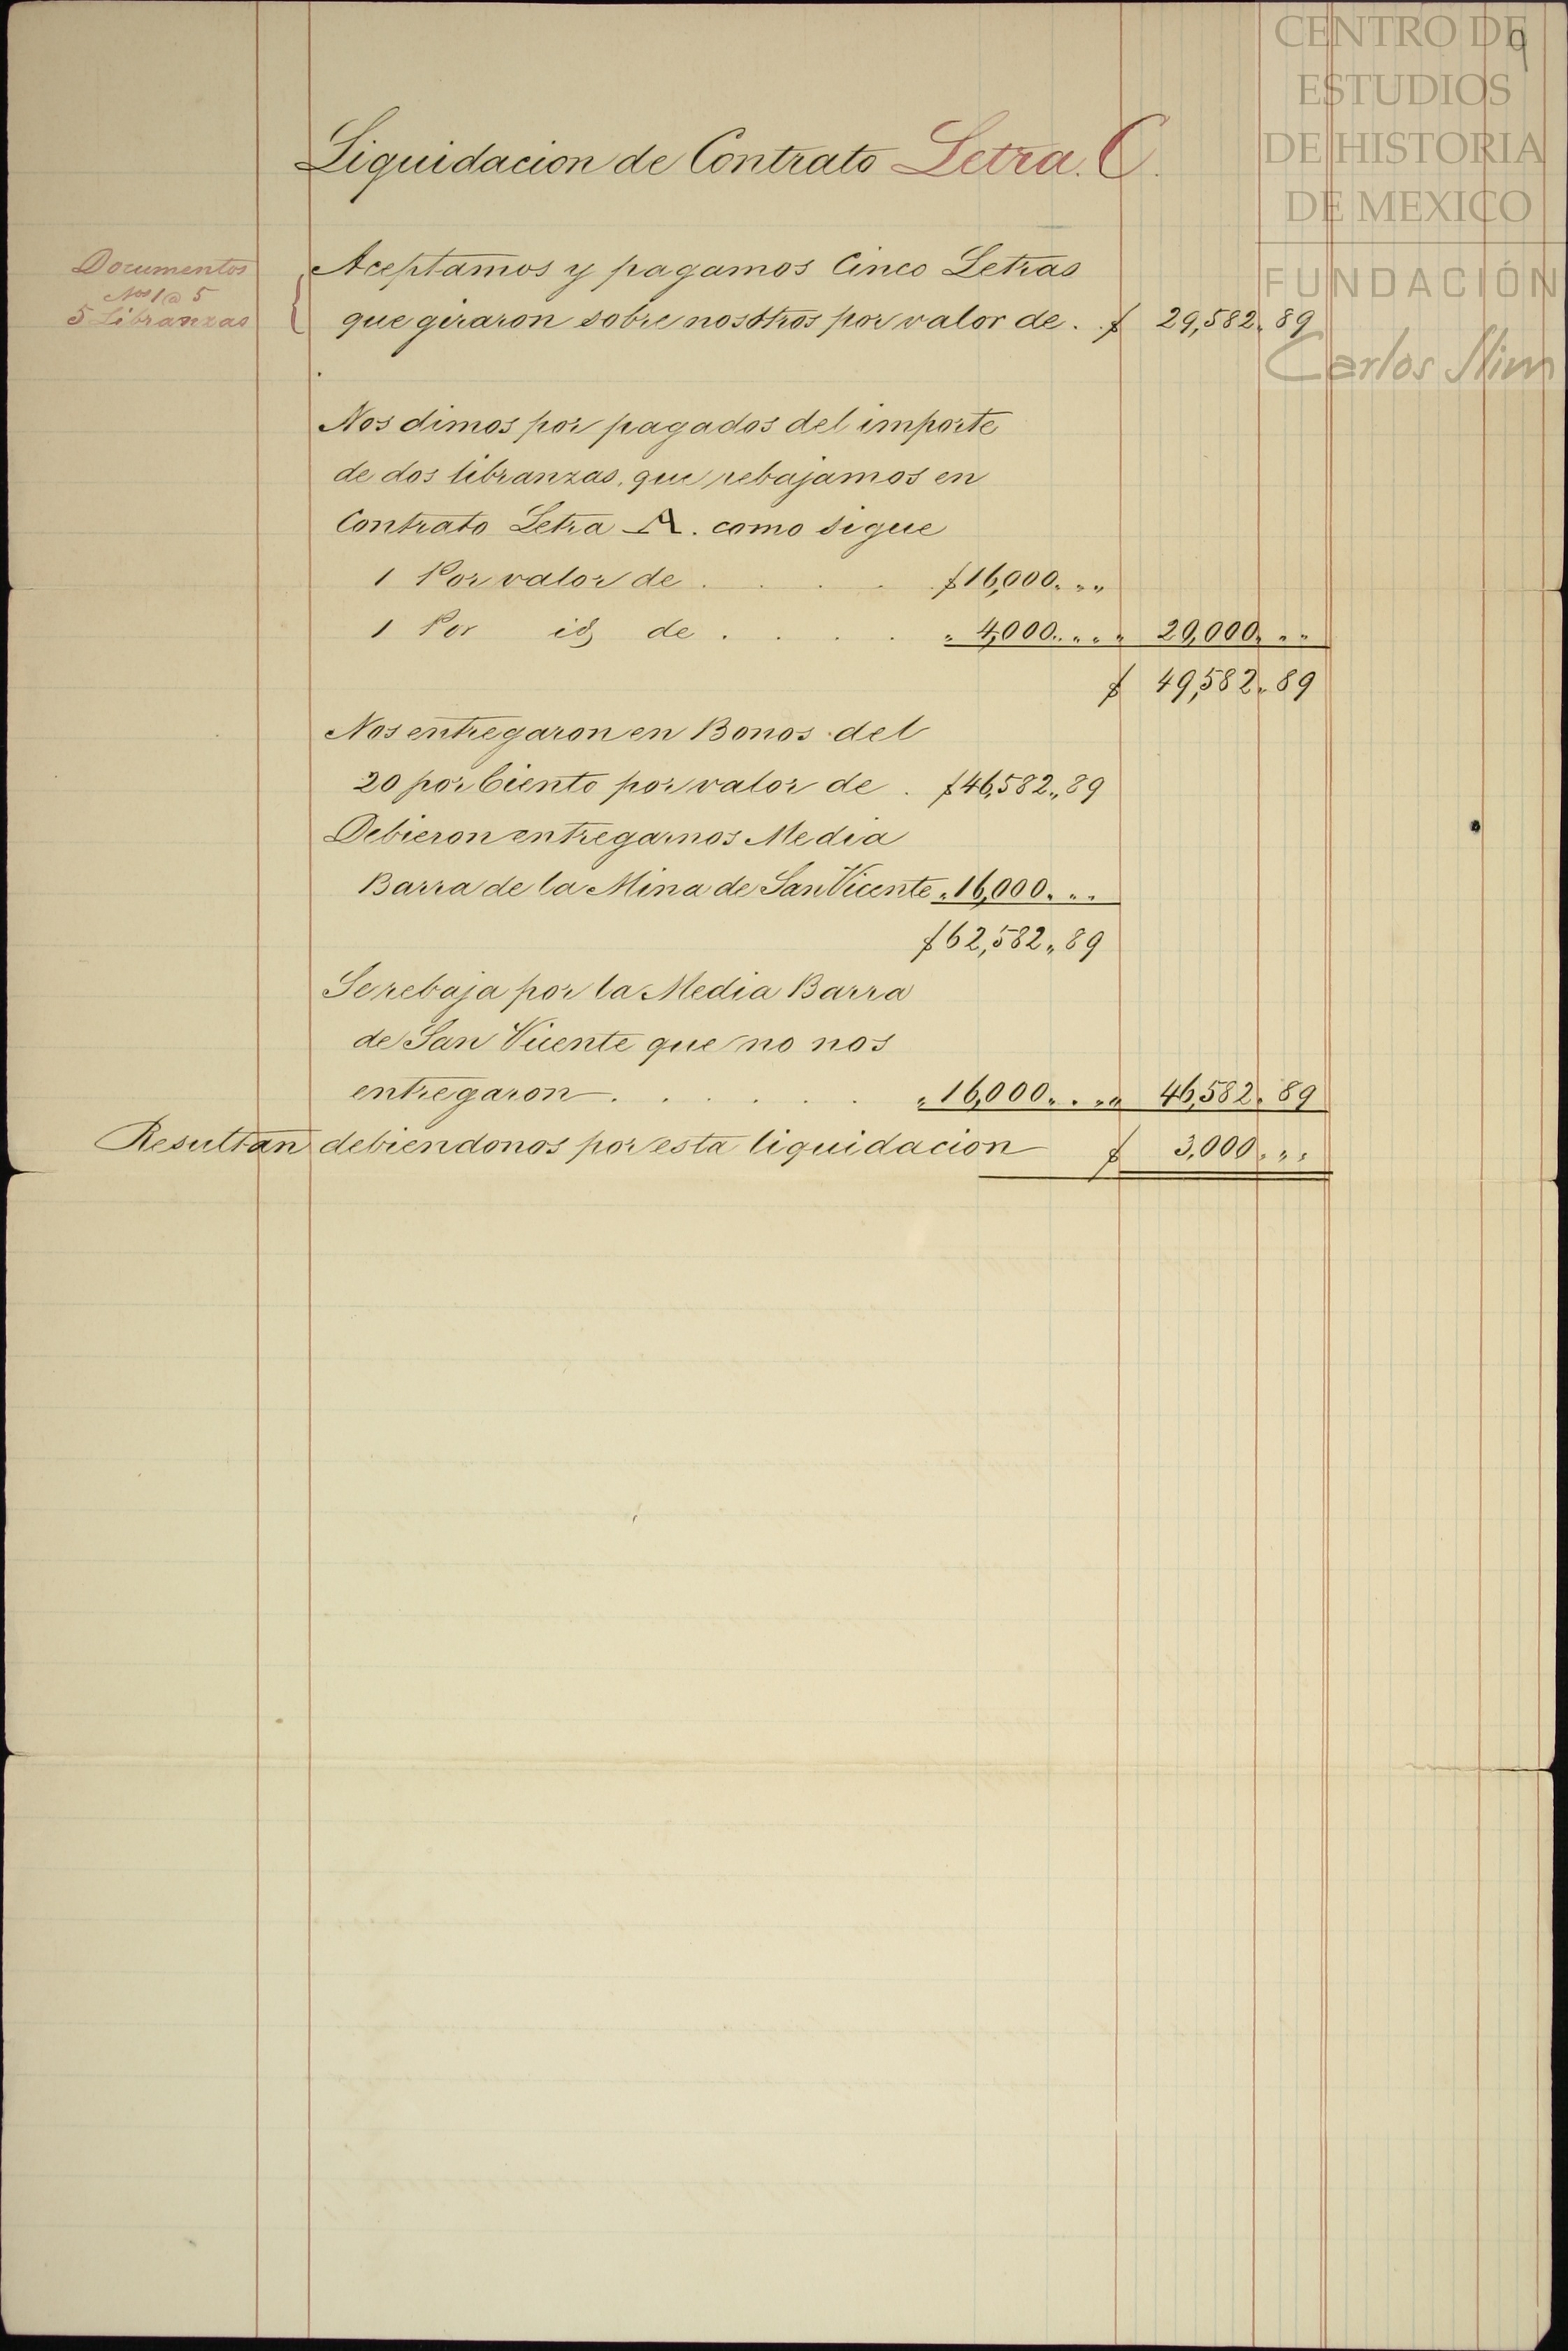 9
CENTRO DE
ESTUDIOS
DE HISTORIA
DE MEXICO
FUNDACIÓN
Carlos Slim
Liquidacion de Contrato Letra. C.
Documentos
Nos 1 @ 5
5 Libranzas
Aceptamos y pagamos Cinco Letras
que giraron sobre nosotros por valor de . . $ 29,582.89
Nos dimos por pagados del importe
de dos libranzas, que rebajamos en
Contrato Letra A. como sigue
1 Por valor de . . . . $16,000. „ „
1 Por id de . . . . „ 4,000. . „ „ „ 20,000. „ „
$ 49,582„89
Nos entregaron en Bonos del
20 por Ciento por valor de . $46,582„89
Debieron entregarnos Media
Barra de la Mina de San Vicente „ 16,000. „ „
$62,582„89
Se rebaja por la Media Barra
de San Vicente que no nos
entregaron . . . . . . „ 16,000. . „ „ 46,582.89
Resultan debiendonos por esta liquidacion $ 3,000. „ „